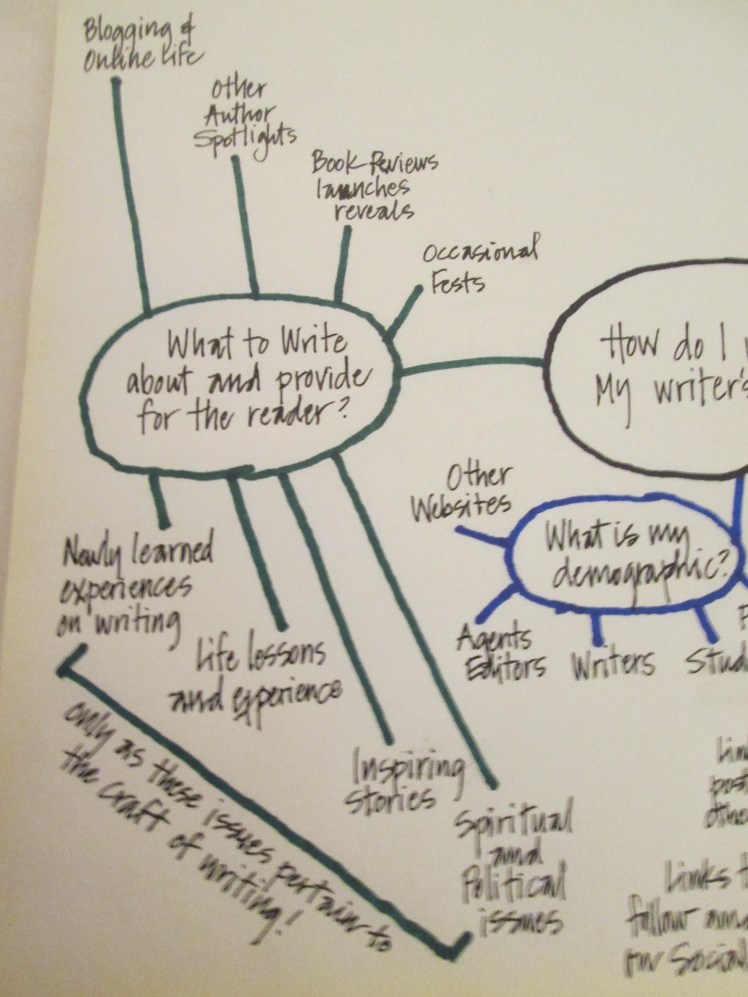 Blogging &
Online Life
Other
Author
Spotlights
Book Reviews
launches
reveals
Occasional
Fests
What to Write
about and provide
for the reader?
How do I
My writer's
Other
Websites
What is my
demographic?
Agents
Editors
Writers
Newly learned
experiences
on writing
Life lessons
and experience
Inspiring
Stories
Spiritual
and
Political
issues
only as these issues pertain to
the craft of writing!
Links
follow
our Social